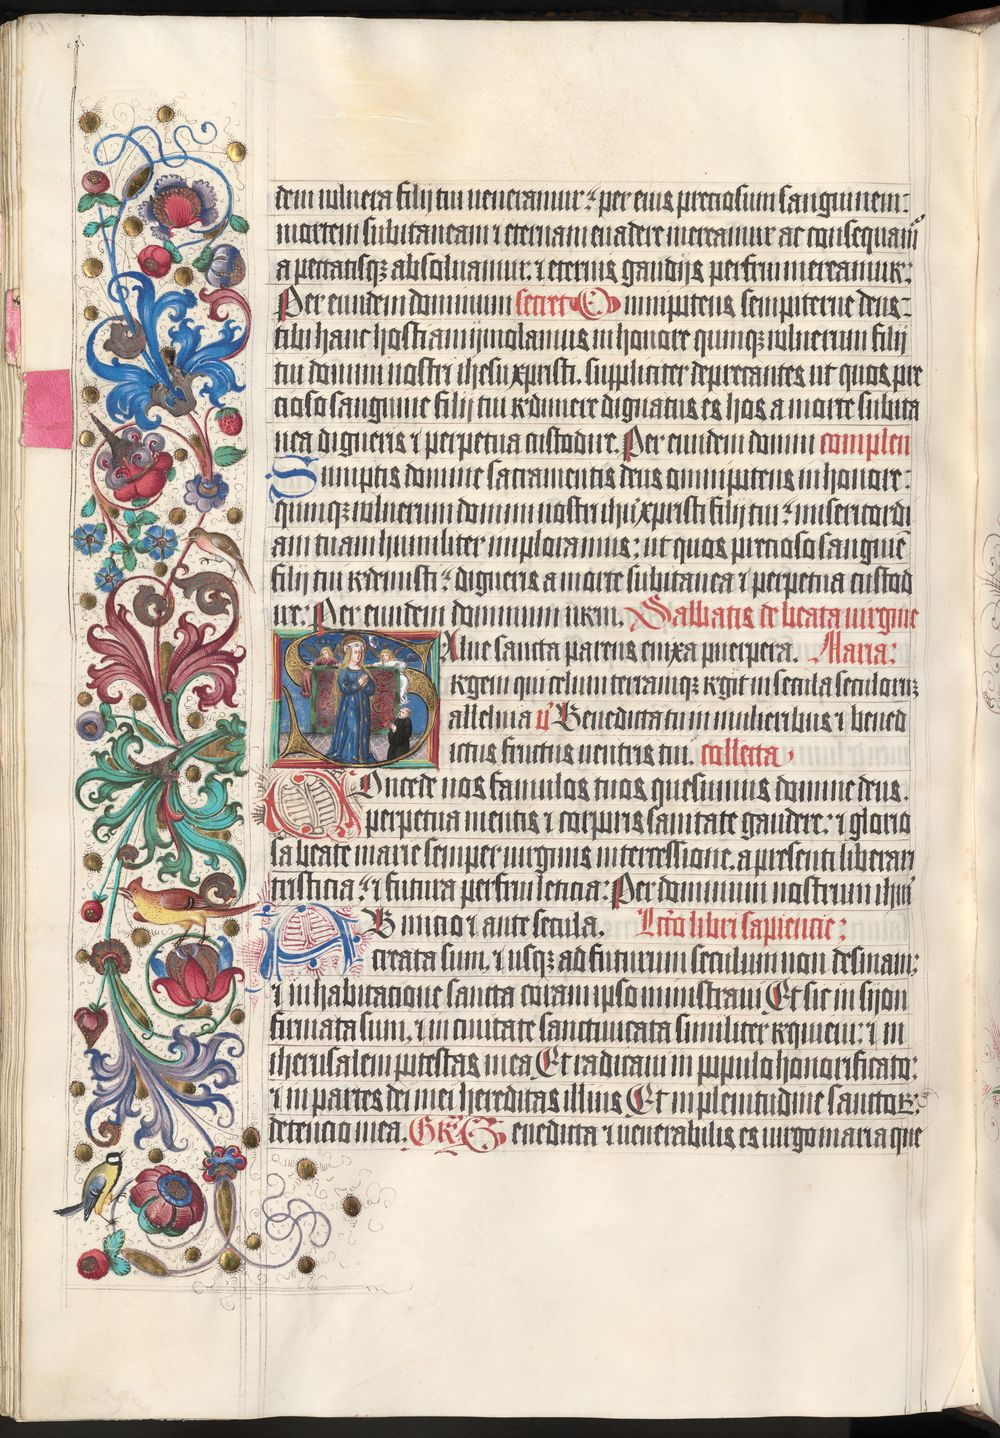 dem wlnera filij tui veneramur: per eius preciosum sanguinem:
mortem subitaneam ⁊ eternam euadere mereamur ac consequam̄
a peccatisqꝫ absoluamur: ⁊ eternis gaudijs perfrui mereamur:
Per eundem dominum secret Omnipotens sempiterne deus:
tibi hanc hostiam ijmolamus in honore quinqꝫ wlnerum filij
tui domini nostri ihesu xpristi. suppliciter deprecantes ut quos pre
cioso sanguine filij tui redimere dignatus es hos a morte subita
nea digneris ⁊ perpetua custodire. Per eundem domini complen
Sumptis domine sacramentis deus omnipotens in honore:
quinqꝫ wlnerum domini nostri ihū xpristi filij tui: misericordi
am tuam humiliter imploramus: ut quos precioso sanguiē
filij tui redemisti: digneris a morte subitanea ⁊ perpetua custod
ire: Per eundem dominum nrm. Sabbatis de beata uirgine
Salue sancta parens enixa puerpera. Maria:
regem qui celum terramqꝫ regit in secula seculorꝫ
alleluia v̄ Benedicta tu in mulieribus ⁊ bened
ictus fructus uentris tui. collecta
Concede nos famulos tuos quesumus domine deus.
perpetua mentis ⁊ corporis sanitate gaudere: ⁊ glorio
sa beate marie semper uirginis intercessione. a presenti liberari
tristicia: ⁊ futura perfrui leticia: Per dominum nostrum ihm̄
AB inicio ⁊ ante secula. Lc̄co libri sapiencie:
creata sum. ⁊ usqꝫ ad futurum seculum non desinam:
⁊ in habitacione sancta coram ipso ministraui Et sic in sijon
firmata sum. ⁊ in ciuitate sanctificata similiter requieui: ⁊ in
iherusalem potestas mea Et radicaui in populo honorificato:
⁊ in partes dei mei hereditas illius Et in plenitudine sanctoꝝ:
detencio mea. Gr̄ Benedicta ⁊ uenerabilis es uirgo maria que